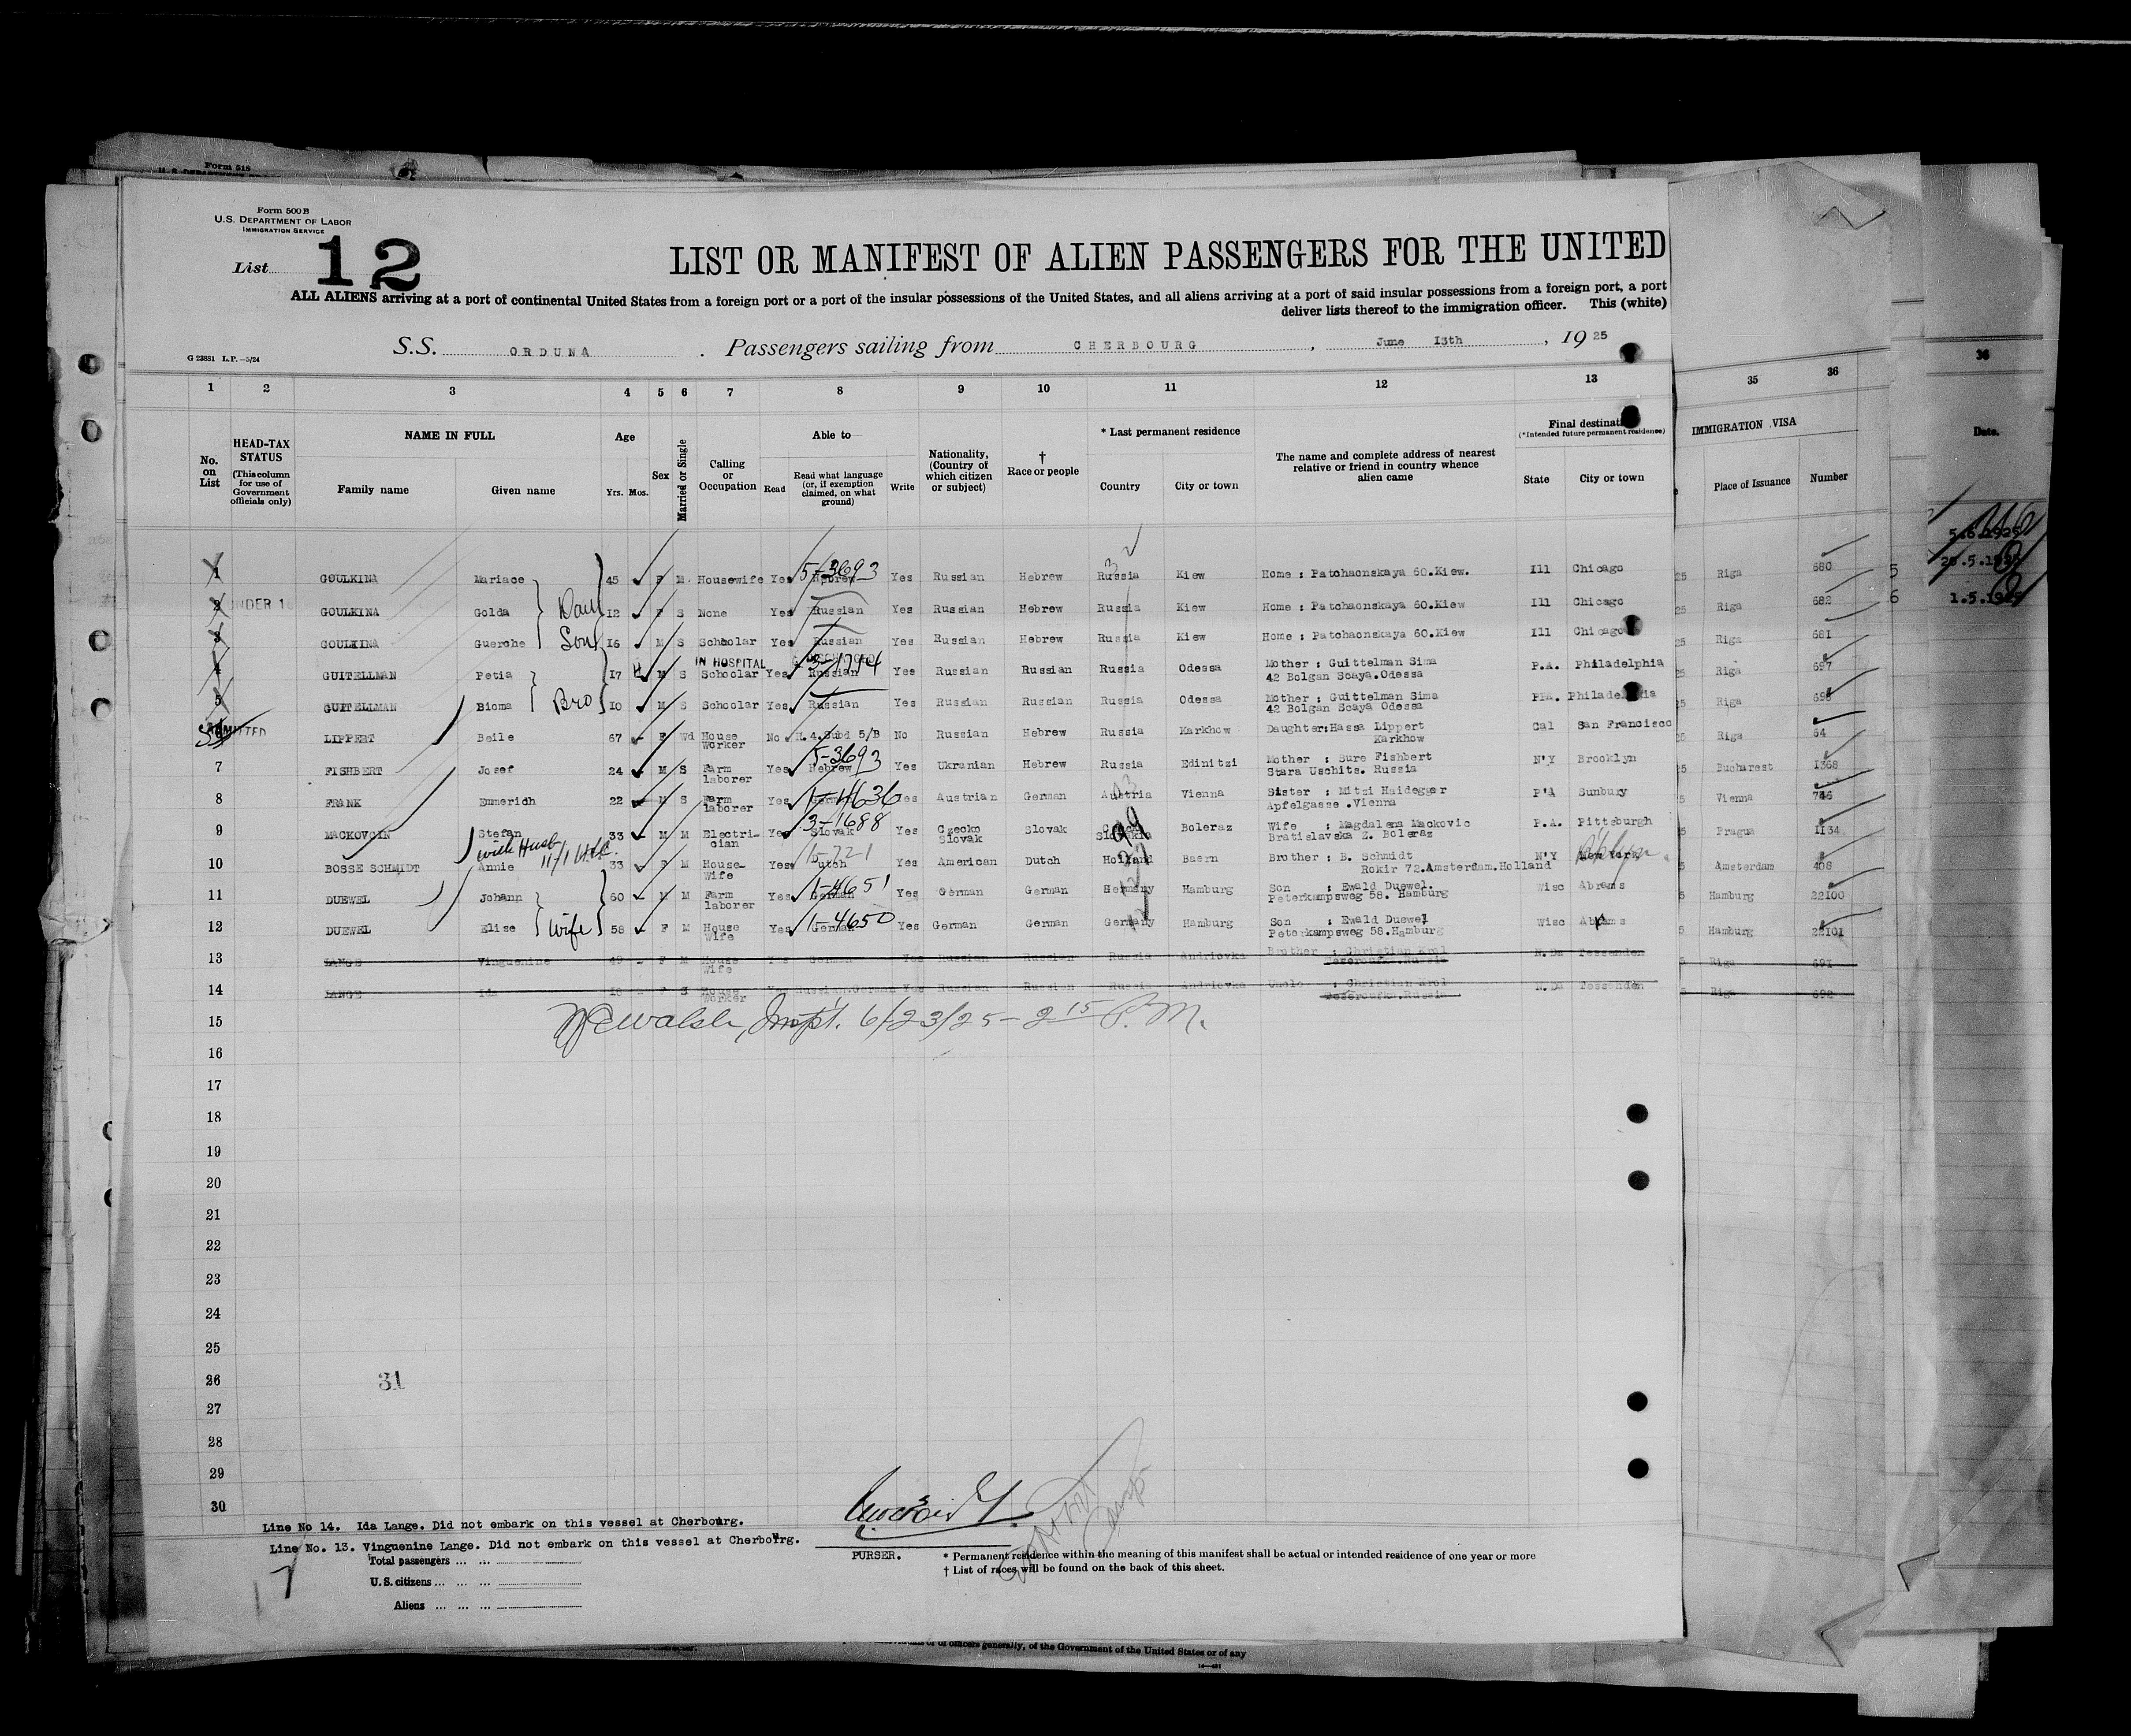 Form 518
Form 500B
U.S. DEPARTMENT OF LABOR
IMMIGRATION SERVICE
List 12
LIST OR MANIFEST OF ALIEN PASSENGERS FOR THE UNITED
ALL ALIENS arriving at a port of continental United States from a foreign port or a port of the insular possessions of the United States, and all aliens arriving at a port of said insular possessions from a foreign port, a port
deliver lists thereof to the immigration officer. This (white)
G 23881 L.P.—5/24
S.S. ORDUNA . Passengers sailing from CHERBOURG , June 13th , 19 25
1 2 3 4 5 6 7 8 9 10 11 12 13 35 36 36
No. on List
HEAD-TAX STATUS
(This column for use of Government officials only)
NAME IN FULL
Family name Given name
Age
Yrs. Mos.
Sex
Married or Single
Calling or Occupation
Able to
Read
Read what language (or, if exemption claimed, on what ground)
Write
Nationality, (Country of which citizen or subject)
† Race or people
* Last permanent residence
Country City or town
The name and complete address of nearest relative or friend in country whence alien came
(*Intended future permanent residence)
State City or town
IMMIGRATION VISA
Place of Issuance Number
Date.
1 GOULKINA Mariace 45 F M Housewife Yes 5-3693 Hebrew Yes Russian Hebrew Russia Kiew Home : Patchaonskaya 60.Kiew. Ill Chicago 25 Riga 680
2 UNDER 16 GOULKINA Golda Dau 12 F S None Yes Russian Yes Russian Hebrew Russia Kiew Home : Patchaonskaya 60.Kiew Ill Chicago 25 Riga 682
3 GOULKINA Guerche Son 16 M S Schoolar Yes Russian Yes Russian Hebrew Russia Kiew Home : Patchaonskaya 60.Kiew Ill Chicago 25 Riga 681
IN HOSPITAL
4 GUITELLMAN Petia 17 M S Schoolar Yes Russian Yes Russian Russian Russia Odessa Mother : Guittelman Sima P.A. Philadelphia 25 Riga 697
42 Bolgan Scaya.Odessa
5 GUITELLMAN Bioma Bro 10 M S Schoolar Yes Russian Yes Russian Russian Russia Odessa Mother : Guittelman Sima Philadelphia 25 Riga
42 Bolgan Scaya Odessa
ADMITTED LIPPERT Beile 67 F Wd House worker No H.4.Subd 5/B No Russian Hebrew Russia Karkhow Daughter:Hassa Lippert Cal San Francisco Riga 54
Karkhow
7 FISHBERT Josef 24 M S Farm laborer Yes 5-3693 Hebrew Yes Ukranian Hebrew Russia Edinitzi Mother : Sure Fishbert N'Y Brooklyn 25 Bucharest 1368
Stara Uschits. Russia
8 FRANK Emmerich 22 M S Farm laborer Yes 1-4636 German Yes Austrian German Austria Vienna Sister : Mitzi Haidegger P'A Sunbury 5 Vienna 746
Apfelgasse .Vienna
9 MACKOVCIN Stefan 33 M M Electrician Yes 3-1688 Slovak Yes Czecko Slovak Slovak Boleraz Wife : Magdalena Mackovic P.A. Pittsburgh 5 Prague 1134
Bratislavska Z. Boleraz
with Husb
10 BOSSE SCHMIDT Annie 33 F M House-Wife Yes 15-721 Dutch Yes American Dutch Holland Baern Brother : B. Schmidt N'Y New York 5 Amsterdam 408
Rokir 72.Amsterdam.Holland
11 DUEWEL Johann 60 M M Farm laborer Yes 1-4651 German Yes German German Germany Hamburg Son : Ewald Duewel. Wisc Abrams 5 Hamburg 22100
Peterkampsweg 58. Hamburg
12 DUEWEL Elise Wife 58 F M House Wife Yes 1-4650 German Yes German German Germany Hamburg Son : Ewald Duewel Wisc Abrams 5 Hamburg 22101
Peterkampsweg 58.Hamburg
13 LANGE Vinguenine 49 F M House Wife Yes German Yes Russian Russian Russia Andrievka Brother : Christian Krol N.Da Fessenden 5 Riga 691
14 LANGE Ida 18 F S House Worker Yes Russian.German Yes Russian Russian Russia Andrievka Uncle : Christian Krol N.Da Fessenden 5 Riga 692
15 Walsh, Inspt. 6/23/25 – 2 15 P.M.
16
17
18
19
20
21
22
23
24
25
26 31
27
28
29
30
Line No 14. Ida Lange. Did not embark on this vessel at Cherbourg.
Line No. 13. Vinguenine Lange. Did not embark on this vessel at Cherbourg.
Total passengers
U.S. citizens
Aliens
PURSER.
* Permanent residence within the meaning of this manifest shall be actual or intended residence of one year or more
† List of races will be found on the back of this sheet.
of officers generally, of the Government of the United States or of any
5.6.1925
5 20.5.1925
6 1.5.1925